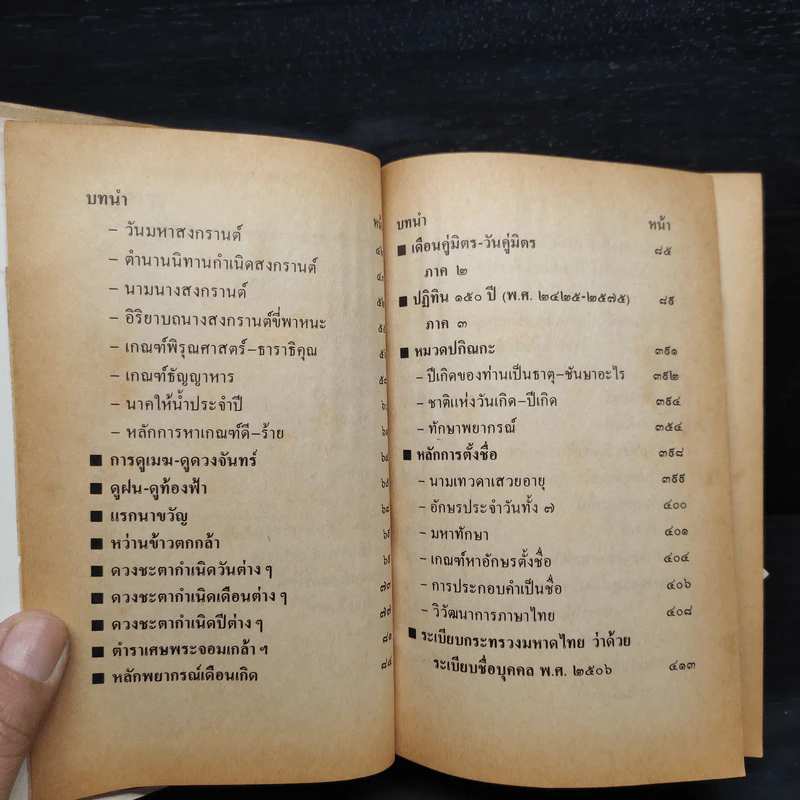 บทนำ
– วันมหาสงกรานต์
– ตำนานนิทานกำเนิดสงกรานต์
– นามนางสงกรานต์
– อิริยาบถนางสงกรานต์ขี่พาหนะ
– เกณฑ์พิรุณศาสตร์–ธาราธิคุณ
– เกณฑ์ธัญญาหาร
– นาคให้น้ำประจำปี
– หลักการหาเกณฑ์ดี–ร้าย
■ การดูเมฆ-ดูดวงจันทร์
■ ดูฝน-ดูท้องฟ้า
■ แรกนาขวัญ
■ หว่านข้าวตกกล้า
■ ดวงชะตากำเนิดวันต่าง ๆ ๗๓
■ ดวงชะตากำเนิดเดือนต่าง ๆ ๗๗
■ ดวงชะตากำเนิดปีต่าง ๆ ๘๑
■ ตำราเศษพระจอมเกล้า ฯ ๘๔
■ หลักพยากรณ์เดือนเกิด
บทนำ หน้า
■ เดือนคู่มิตร-วันคู่มิตร ๘๕
ภาค ๒
■ ปฏิทิน ๑๕๐ ปี (พ.ศ. ๒๔๒๕-๒๕๗๕) ๘๙
ภาค ๓
■ หมวดปกิณกะ ๓๙๑
– ปีเกิดของท่านเป็นธาตุ–ชันษาอะไร ๓๙๒
– ชาติแห่งวันเกิด–ปีเกิด ๓๙๔
– ทักษาพยากรณ์ ๓๕๔
■ หลักการตั้งชื่อ ๓๙๘
– นามเทวดาเสวยอายุ ๓๙๙
– อักษรประจำวันทั้ง ๗ ๔๐๐
– มหาทักษา ๔๐๑
– เกณฑ์หาอักษรตั้งชื่อ ๔๐๔
– การประกอบคำเป็นชื่อ ๔๐๖
– วิวัฒนาการภาษาไทย ๔๐๘
■ ระเบียบกระทรวงมหาดไทย ว่าด้วย
ระเบียบชื่อบุคคล พ.ศ. ๒๕๐๖ ๔๑๓